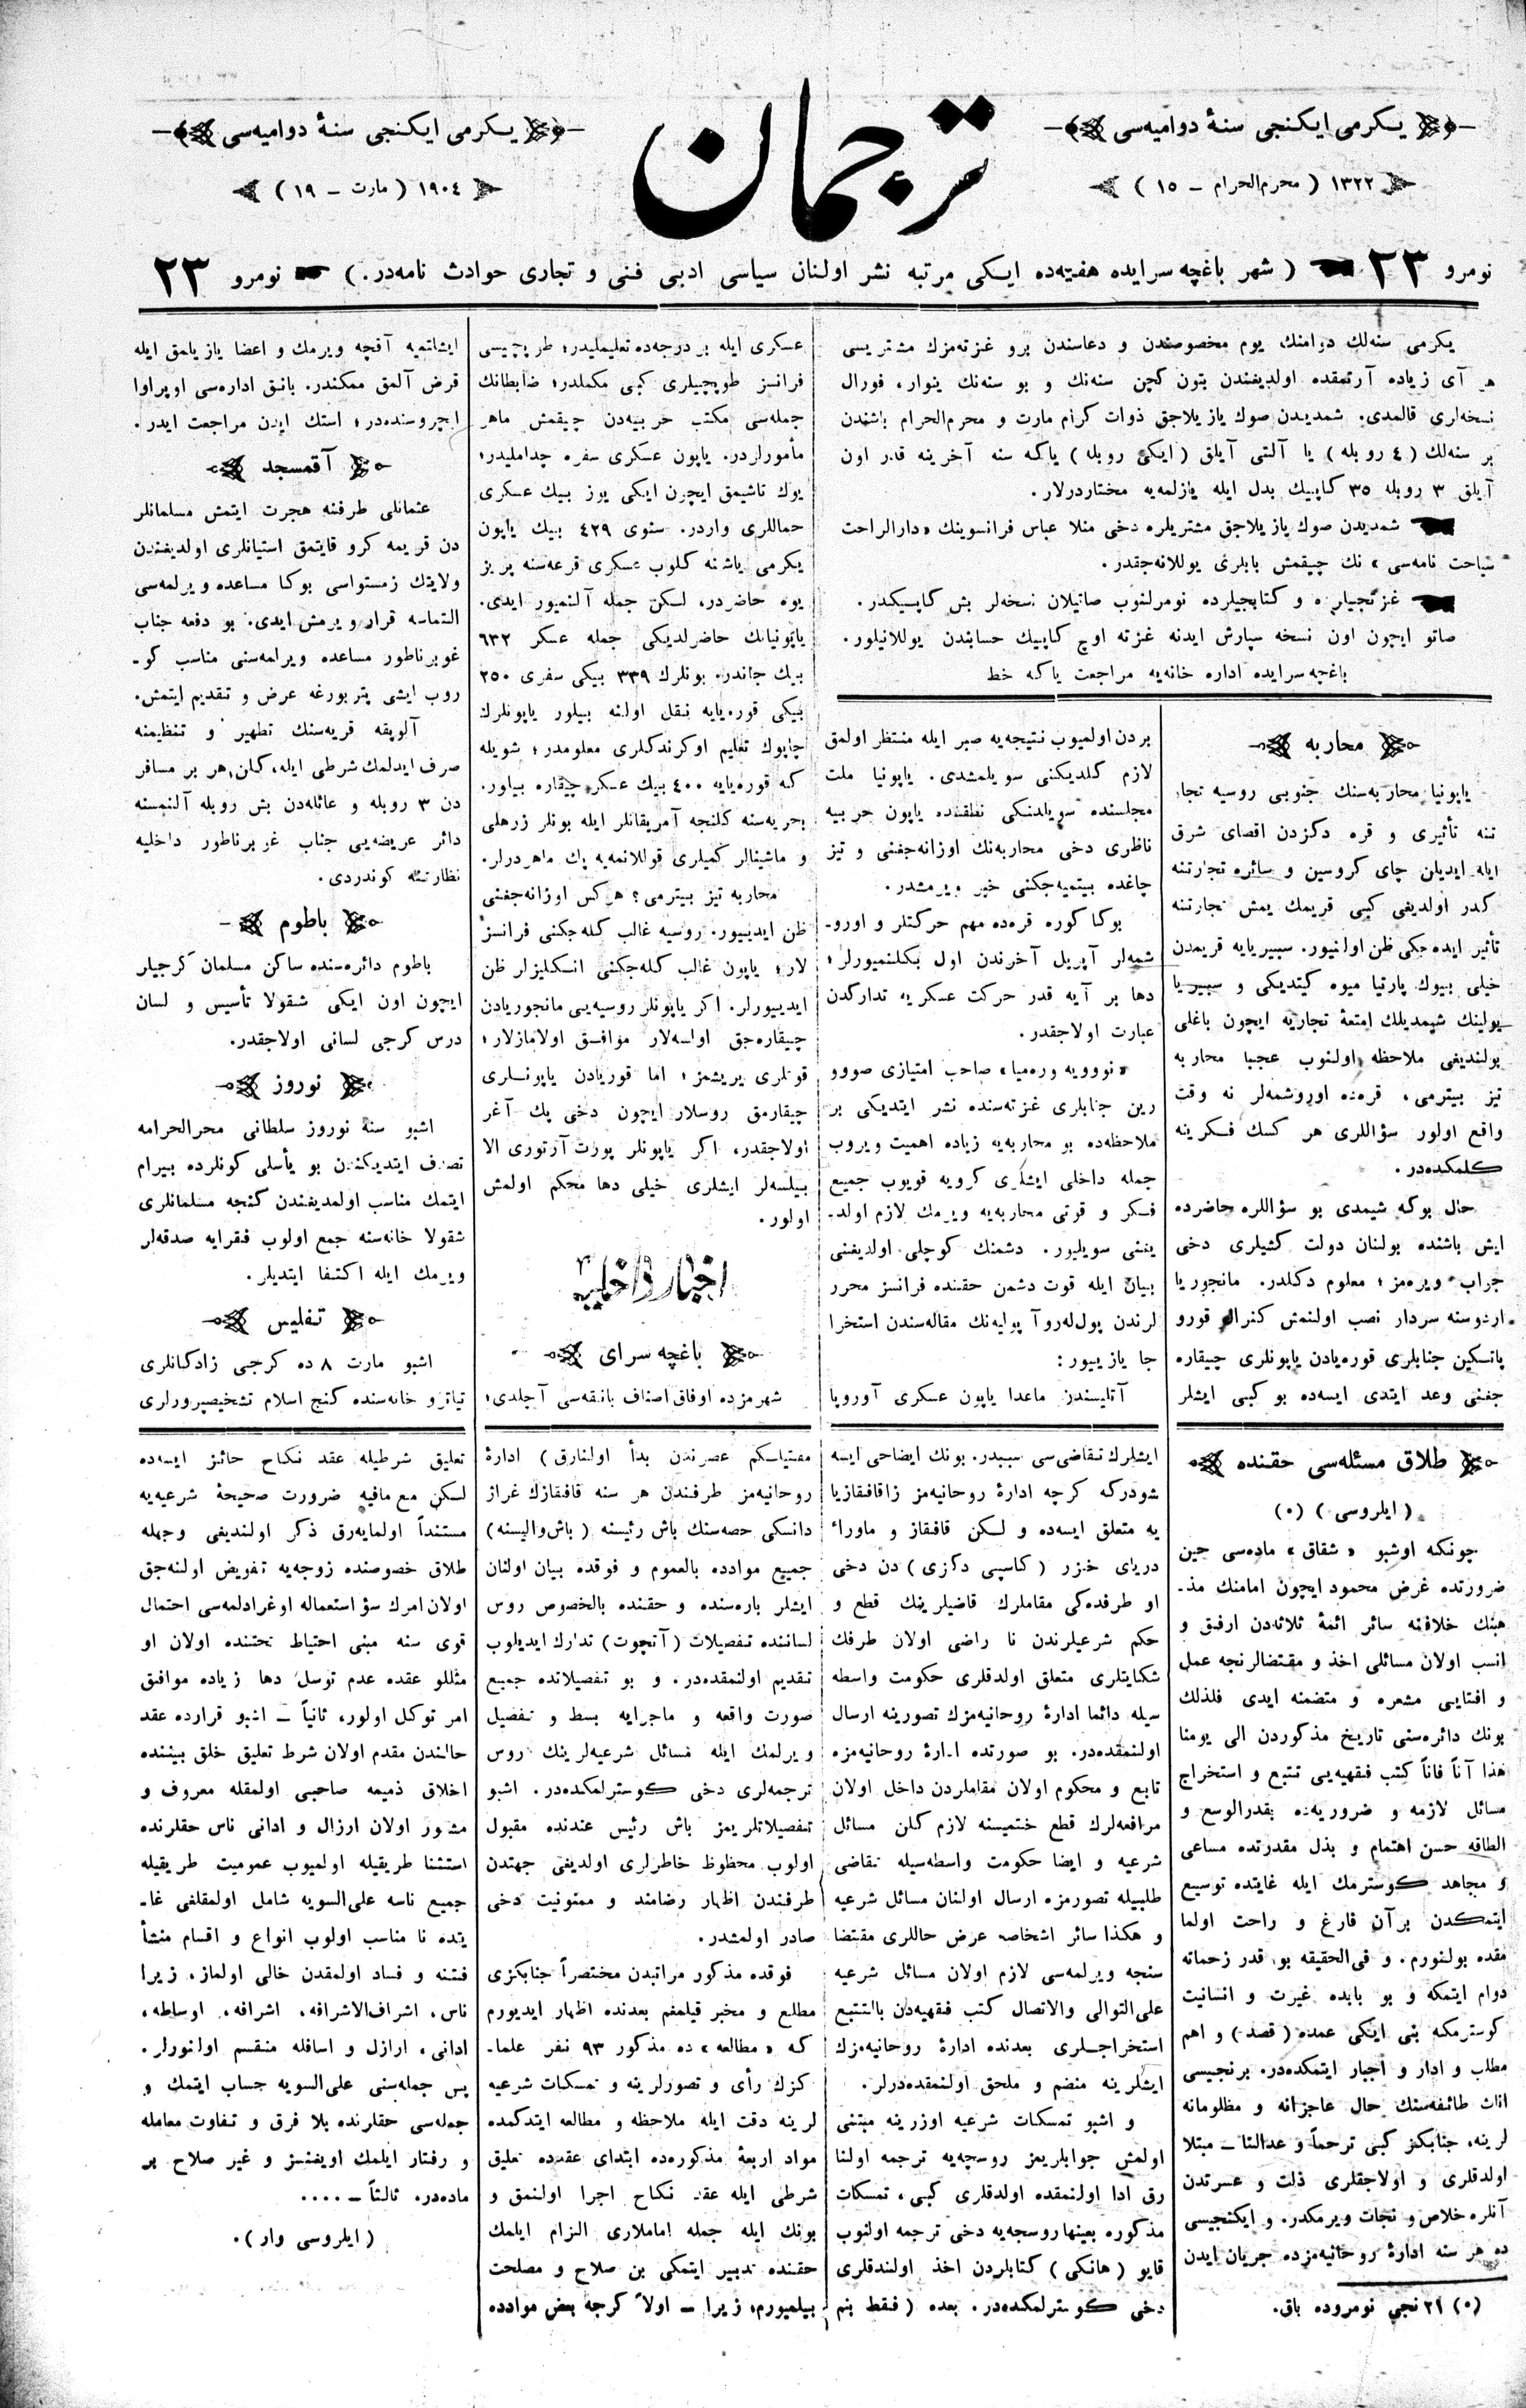 یکرمی ایکنجی سنهٔ دوامیه‌سی
ترجمان
یکرمی ایکنجی سنهٔ دوامیه‌سی
١٣٢٢ ( محرم‌الحرام ـ ١٥ )
١٩٠٤ ( مارت ـ ١٩ )
نومرو ٢٣ ( شهر باغچه سرایده هفته‌ده ایکی مرتبه نشر اولنان سیاسی ادبی فنی و تجاری حوادث نامه‌در. ) نومرو ٢٣
یکرمی سنه‌لك دوامنك یوم مخصوصندن و دعاسندن برو غزته‌مزك مشتریسی
هر آی زیاده آرتمقده اولدیغندن بتون کچن سنه‌نك و بو سنه‌نك ینوار، فورال
نسخه‌لری قالمدی. شمدیدن صوك یازیلاجق ذوات کرام مارت و محرم‌الحرام باشندن
بر سنه‌لك ( ٤ روبله ) یا آلتی آیلق ( ایکی روبله ) یاکه سنه آخرینه قدر اون
آیلق ٣ روبله ٣٥ کاپیك بدل ایله یازلمه‌یه مختاردرلار.
شمدیدن صوك یازیلاجق مشتریلره دخی منلا عباس فرانسوینك « دارالراحت
سیاحت نامه‌سی » نك چیقمش بابلری یوللانه‌جقدر.
غزتجیلره و کتابجیلرده نومرلنوب صاتیلان نسخه‌لر بش کاپیکدر.
صاتو ایچون اون نسخه سپارش ایدنه غزته اوچ کاپیك حسابندن یوللانیلور.
باغچه سرایده اداره خانه‌یه مراجعت یاکه خط
محاربه
یاپونیا محاربه‌سنك جنوبی روسیه تجار
تنه تأثیری و قره دکزدن اقصای شرق
ایله ایدیلان چای کروسین و سائره تجارتنه
کدر اولدیغی کبی قریمك یمش تجارتنه
تأثیر ایده‌جکی ظن اولنیور. سیبیریایه قریمدن
خیلی بیوك پارتیا میوه کیتدیکی و سیبیریا
یولینك شیمدیلك امتعهٔ تجاریه ایچون باغلی
بولندیغی ملاحظه اولنوب عجبا محاربه
تیز بیترمی، قره‌ده اوروشمه‌لر نه وقت
واقع اولور سؤاللری هر کسك فکرینه
کلمکده‌در.
حال بوکه شیمدی بو سؤاللره حاضرده
ایش باشنده بولنان دولت کشیلری دخی
جواب ویره‌مز ؛ معلوم دکلدر. مانجوریا
اردوسنه سردار نصب اولنمش کنرال قورو
پاتکین جنابلری قوره‌یادن یاپونلری چیقاره
جغنی وعد ایتدی ایسه‌ده بو کبی ایشلر
بردن اولمیوب نتیجه‌یه صبر ایله منتظر اولمق
لازم کلدیکنی سویلمشدی. یاپونیا ملت
مجلسنده سویلدیکی نطقنده یاپون حربیه
ناظری دخی محاربه‌نك اوزانه‌جغنی و تیز
چاغده بیتمیه‌جکنی خبر ویرمشدر.
بوکا کوره قره‌ده مهم حرکتلر و اورو-
شمه‌لر آپریل آخرندن اول بکلنمیورلر ؛
دها بر آیه قدر حرکت عسکریه تدارکدن
عبارت اولاجقدر.
« نوویه وره‌میا » صاحب امتیازی صووو
رین جنابلری غزته‌سنده نشر ایتدیکی بر
ملاحظه‌ده بو محاربه‌یه زیاده اهمیت ویروب
جمله داخلی ایشلری کرویه قویوب جمیع
فکر و قوتی محاربه‌یه ویرمك لازم اولد-
یغنی سویلیور. دشمنك کوچلی اولدیغنی
بیان ایله قوت دشمن حقنده فرانسز محرر
لرندن پول‌له‌روآ بولیه‌نك مقاله‌سندن استخرا
جا یازییور :
آتلیسندن ماعدا یاپون عسکری آوروپا
عسکری ایله بر درجه‌ده تعلیملیدر ؛ طوپچیسی
فرانسز طوپچیلری کبی مکملدر ؛ ضابطانك
جمله‌سی مکتب حربیه‌دن چیقمش ماهر
مأمورلردر. یاپون عسکری سفره چداملیدر ؛
یوك تاشیمق ایچون ایکی یوز بیك عسکری
حماللری واردر. سنوی ٤٢٩ بیك یاپون
یکرمی یاشنه کلوب عسکری قرعه‌سنه پریز
یوه حاضردر، لکن جمله آلنمیور ایدی.
یاپونیانك حاضرلدیکی جمله عسکر ٦٣٢
بیك جاندر. بونلرك ٣٣٩ بیکی سفری ٢٥٠
بیکی قوره‌یایه نقل اولنه بیلور یاپونلرك
چاپوك تعلیم اوکرندکلری معلومدر ؛ شویله
که قوره‌یایه ٤٠٠ بیك عسکر چیقاره بیلور.
بحریه‌سنه کلنجه آمریقانلر ایله بونلر زرهلی
و ماشینالر کمیلری قوللانمه‌یه پك ماهردرلر.
محاربه تیز بیترمی ؟ هرکس اوزانه‌جغنی
ظن ایدییور. روسیه غالب کله‌جکنی فرانسز
لار ؛ یاپون غالب کله‌جکنی انکلیزلر ظن
ایدییورلر. اکر یاپونلر روسیه‌یی مانجوریادن
چیقاره‌جق اولسه‌لار موافق اولامازلار ؛
قوتلری یریشمز ؛ اما قوریادن یاپونلری
چیقارمق روسلار ایچون دخی پك آغر
اولاجقدر، اکر یاپونلر پورت آرتوری الا
بیلسه‌لر ایشلری خیلی دها محکم اولمش
اولور.
اخبار داخلیه
باغچه سرای
شهرمزده اوفاق اصناف بانقه‌سی آچلدی ؛
ایشلتمیه آقچه ویرمك و اعضا یازیلمق ایله
قرض آلمق ممکندر. بانق اداره‌سی اوپراوا
ایچروسنده‌در ؛ استك ایدن مراجعت ایدر.
آقمسجد
عثمانلی طرفنه هجرت ایتمش مسلمانلر
دن قریمه کرو قایتمق استیانلری اولدیغندن
ولایتك زمستواسی بوکا مساعده ویرلمه‌سی
التماسه قرار ویرمش ایدی. بو دفعه جناب
غوبرناطور مساعده ویرلمه‌سنی مناسب کو-
روب ایشی پتربورغه عرض و تقدیم ایتمش.
آلوپقه قریه‌سنك تطهیر و تنظیمنه
صرف ایدلمك شرطی ایله، کلن هر بر مسافر
دن ٣ روبله و عائله‌دن بش روبله آلنمسنه
دائر عریضه‌یی جناب غوبرناطور داخلیه
نظارتنه کوندردی.
باطوم
باطوم دائره‌سنده ساکن مسلمان کرجیلر
ایچون اون ایکی شقولا تأسیس و لسان
درس کرجی لسانی اولاجقدر.
نوروز
اشبو سنه نوروز سلطانی محرالحرامه
تصادف ایتدیکندن بو یأسلی کونلرده بیرام
ایتمك مناسب اولمدیغندن کنجه مسلمانلری
شقولا خانه‌سنه جمع اولوب فقرایه صدقه‌لر
ویرمك ایله اکتفا ایتدیلر.
تفلیس
اشبو مارت ٨ ده کرجی زادکانلری
تیاترو خانه‌سنده کنج اسلام تشخیصپرورلری
طلاق مسئله‌سی حقنده
( ایلروسی ) (٠)
چونکه اوشبو « شقاق » ماده‌سی حین
ضرورتده غرض محمود ایچون امامنك مذ-
هبنك خلافنه سائر ائمهٔ ثلاثه‌دن ارفق و
انسب اولان مسائلی اخذ و مقتضالرنجه عمل
و افتایی مشعره و متضمنه ایدی فلذلك
بونك دائره‌سنی تاریخ مذکوردن الی یومنا
هذا آناً فاناً کتب فقهیه‌یی تتبع و استخراج
مسائل لازمه و ضروریه‌ده بقدرالوسع و
الطاقه حسن اهتمام و بذل مقدرتده مساعی
و مجاهد کوسترمك ایله غایتده توسیع
ایتمکدن برآن فارغ و راحت اولما
مقده بولنورم. و فی‌الحقیقه بو قدر زحماته
دوام ایتمکه و بو بابده غیرت و انسانیت
کوسترمکه بنی ایکی عمده ( قصد ) و اهم
مطلب و ادار و اجبار ایتمکده‌در. برنجیسی
اناث طائفه‌سنك حال عاجزانه و مظلومانه
لرینه، جنابکز کبی ترحماً و عدالتا ـ مبتلا
اولدقلری و اولاجقلری ذلت و عسرتدن
آنلره خلاص و نجات ویرمکدر. و ایکنجیسی
ده هر سنه ادارهٔ روحانیه‌مزده جریان ایدن
(٠) ٢١ نجی نومروده باق.
ایشلرك تقاضی‌سی سببدر. بونك ایضاحی ایسه
شودرکه کرچه ادارهٔ روحانیه‌مز زاقافقازیا
یه متعلق ایسه‌ده و لکن قافقاز و ماوراء
دریای خزر ( کاسپی دکزی ) دن دخی
او طرفده‌کی مقاملرك قاضیلرینك قطع و
حکم شرعیلرندن نا راضی اولان طرفك
شکایتلری متعلق اولدقلری حکومت واسطه
سیله دائما ادارهٔ روحانیه‌مزك تصورینه ارسال
اولنمقده‌در. بو صورتده ادارهٔ روحانیه‌مزه
تابع و محکوم اولان مقاملردن داخل اولان
مرافعه‌لرك قطع ختمیسنه لازم کلن مسائل
شرعیه و ایضا حکومت واسطه‌سیله تقاضی
طلبیله تصورمزه ارسال اولنان مسائل شرعیه
و هکذا سائر اشخاصه عرض حاللری مقتضا
سنجه ویرلمه‌سی لازم اولان مسائل شرعیه
علی‌التوالی والاتصال کتب فقهیه‌دن بالتتبع
استخراجلری بعدنده ادارهٔ روحانیه‌مزك
ایشلرینه منضم و ملحق اولنمقده‌درلر.
و اشبو تمسکات شرعیه اوزرینه مبتنی
اولمش جوابلریمز روسچه‌یه ترجمه اولنا
رق ادا اولنمقده اولدقلری کبی، تمسکات
مذکوره بعینها روسچه‌یه دخی ترجمه اولنوب
قایو ( هانکی ) کتابلردن اخذ اولندقلری
دخی کوسترلمکده‌در. بعده ( فقط بنم
مفتیلکم عصرندن بدأ اولنارق ) ادارهٔ
روحانیه‌مز طرفندن هر سنه قافقازك غراز
دانسکی حصه‌سنك باش رئیسنه ( باش‌والیسنه )
جمیع موادده بالعموم و فوقده بیان اولنان
ایشلر باره‌سنده و حقنده بالخصوص روس
لساننده تفصیلات ( آتچوت ) تدارك ایدیلوب
تقدیم اولنمقده‌در. و بو تفصیلاتده جمیع
صورت واقعه و ماجرایه بسط و تفصیل
ویرلمك ایله مسائل شرعیه‌لرینك روس
ترجمه‌لری دخی کوسترلمکده‌در. اشبو
تفصیلاتلریمز باش رئیس عندنده مقبول
اولوب محظوظ خاطرلری اولدیغی جهتدن
طرفندن اظهار رضامند و ممنونیت دخی
صادر اولمشدر.
فوقده مذکور مراتبدن مختصراً جنابکزی
مطلع و مخبر قیلمغم بعدنده اظهار ایدیورم
که « مطالعه » ده مذکور ٩٣ نفر علما-
کزك رأی و تصورلرینه و تمسکات شرعیه
لرینه دقت ایله ملاحظه و مطالعه ایتدکمده
مواد اربعهٔ مذکوره‌ده ابتدای عقدده تعلیق
شرطی ایله عقد نکاح اجرا اولنمق و
بونك ایله جمله اماملاری الزام ایلمك
حقنده تدبیر ایتمکی بن صلاح و مصلحت
بیلمیورم، زیرا ـ اولاً کرچه بعض موادده
تعلیق شرطیله عقد نکاح جائز ایسه‌ده
لکن مع مافیه ضرورت صحیحهٔ شرعیه‌یه
مستنداً اولمایه‌رق ذکر اولندیغی وجهله
طلاق خصوصنده زوجه‌یه تفویض اولنه‌جق
اولان امرك سؤ استعماله اوغرادلمه‌سی احتمال
قوی سنه مبنی احتیاط تحتنده اولان او
مثللو عقده عدم توسل دها زیاده موافق
امر توکل اولور، ثانیاً ـ اشبو قرارده عقد
حالندن مقدم اولان شرط تعلیق خلق بیننده
اخلاق ذمیمه صاحبی اولمقله معروف و
مشهور اولان ارزال و ادانی ناس حقلرنده
استثنا طریقیله اولمیوب عمومیت طریقیله
جمیع ناسه علی‌السویه شامل اولمقلغی غا-
یتده نا مناسب اولوب انواع و اقسام منشأ
فتنه و فساد اولمقدن خالی اولماز، زیرا
ناس، اشراف‌الاشرافه، اشرافه، اوساطه،
ادانی، ارازل و اسافله منقسم اولنورلر.
پس جمله‌سنی علی‌السویه حساب ایتمك و
جمله‌سی حقلرنده بلا فرق و تفاوت معامله
و رفتار ایلمك اویغنسز و غیر صلاح بر
ماده‌در. ثالثاً ـ ....
( ایلروسی وار ).